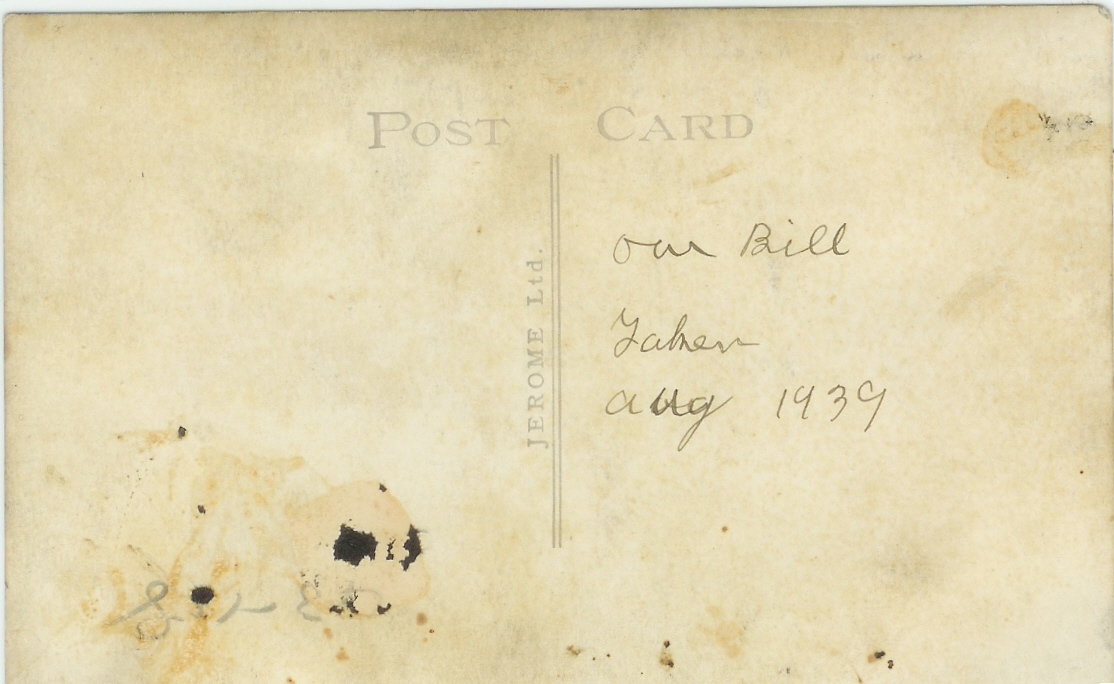 POST CARD
JEROME Ltd.
our Bill
Taken
aug 1939